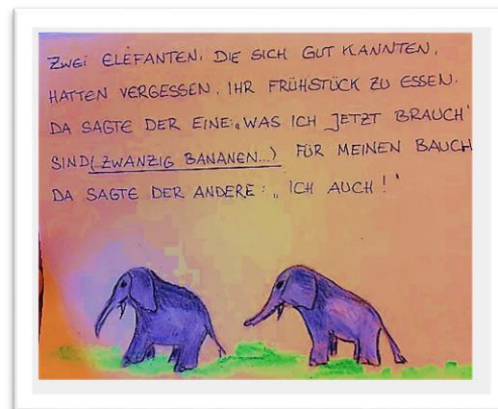 ZWEI ELEFANTEN, DIE SICH GUT KANNTEN,
HATTEN VERGESSEN, IHR FRÜHSTÜCK ZU ESSEN.
DA SAGTE DER EINE: „WAS ICH JETZT BRAUCH'
SIND (ZWANZIG BANANEN...) FÜR MEINEN BAUCH
DA SAGTE DER ANDERE: „ICH AUCH!"